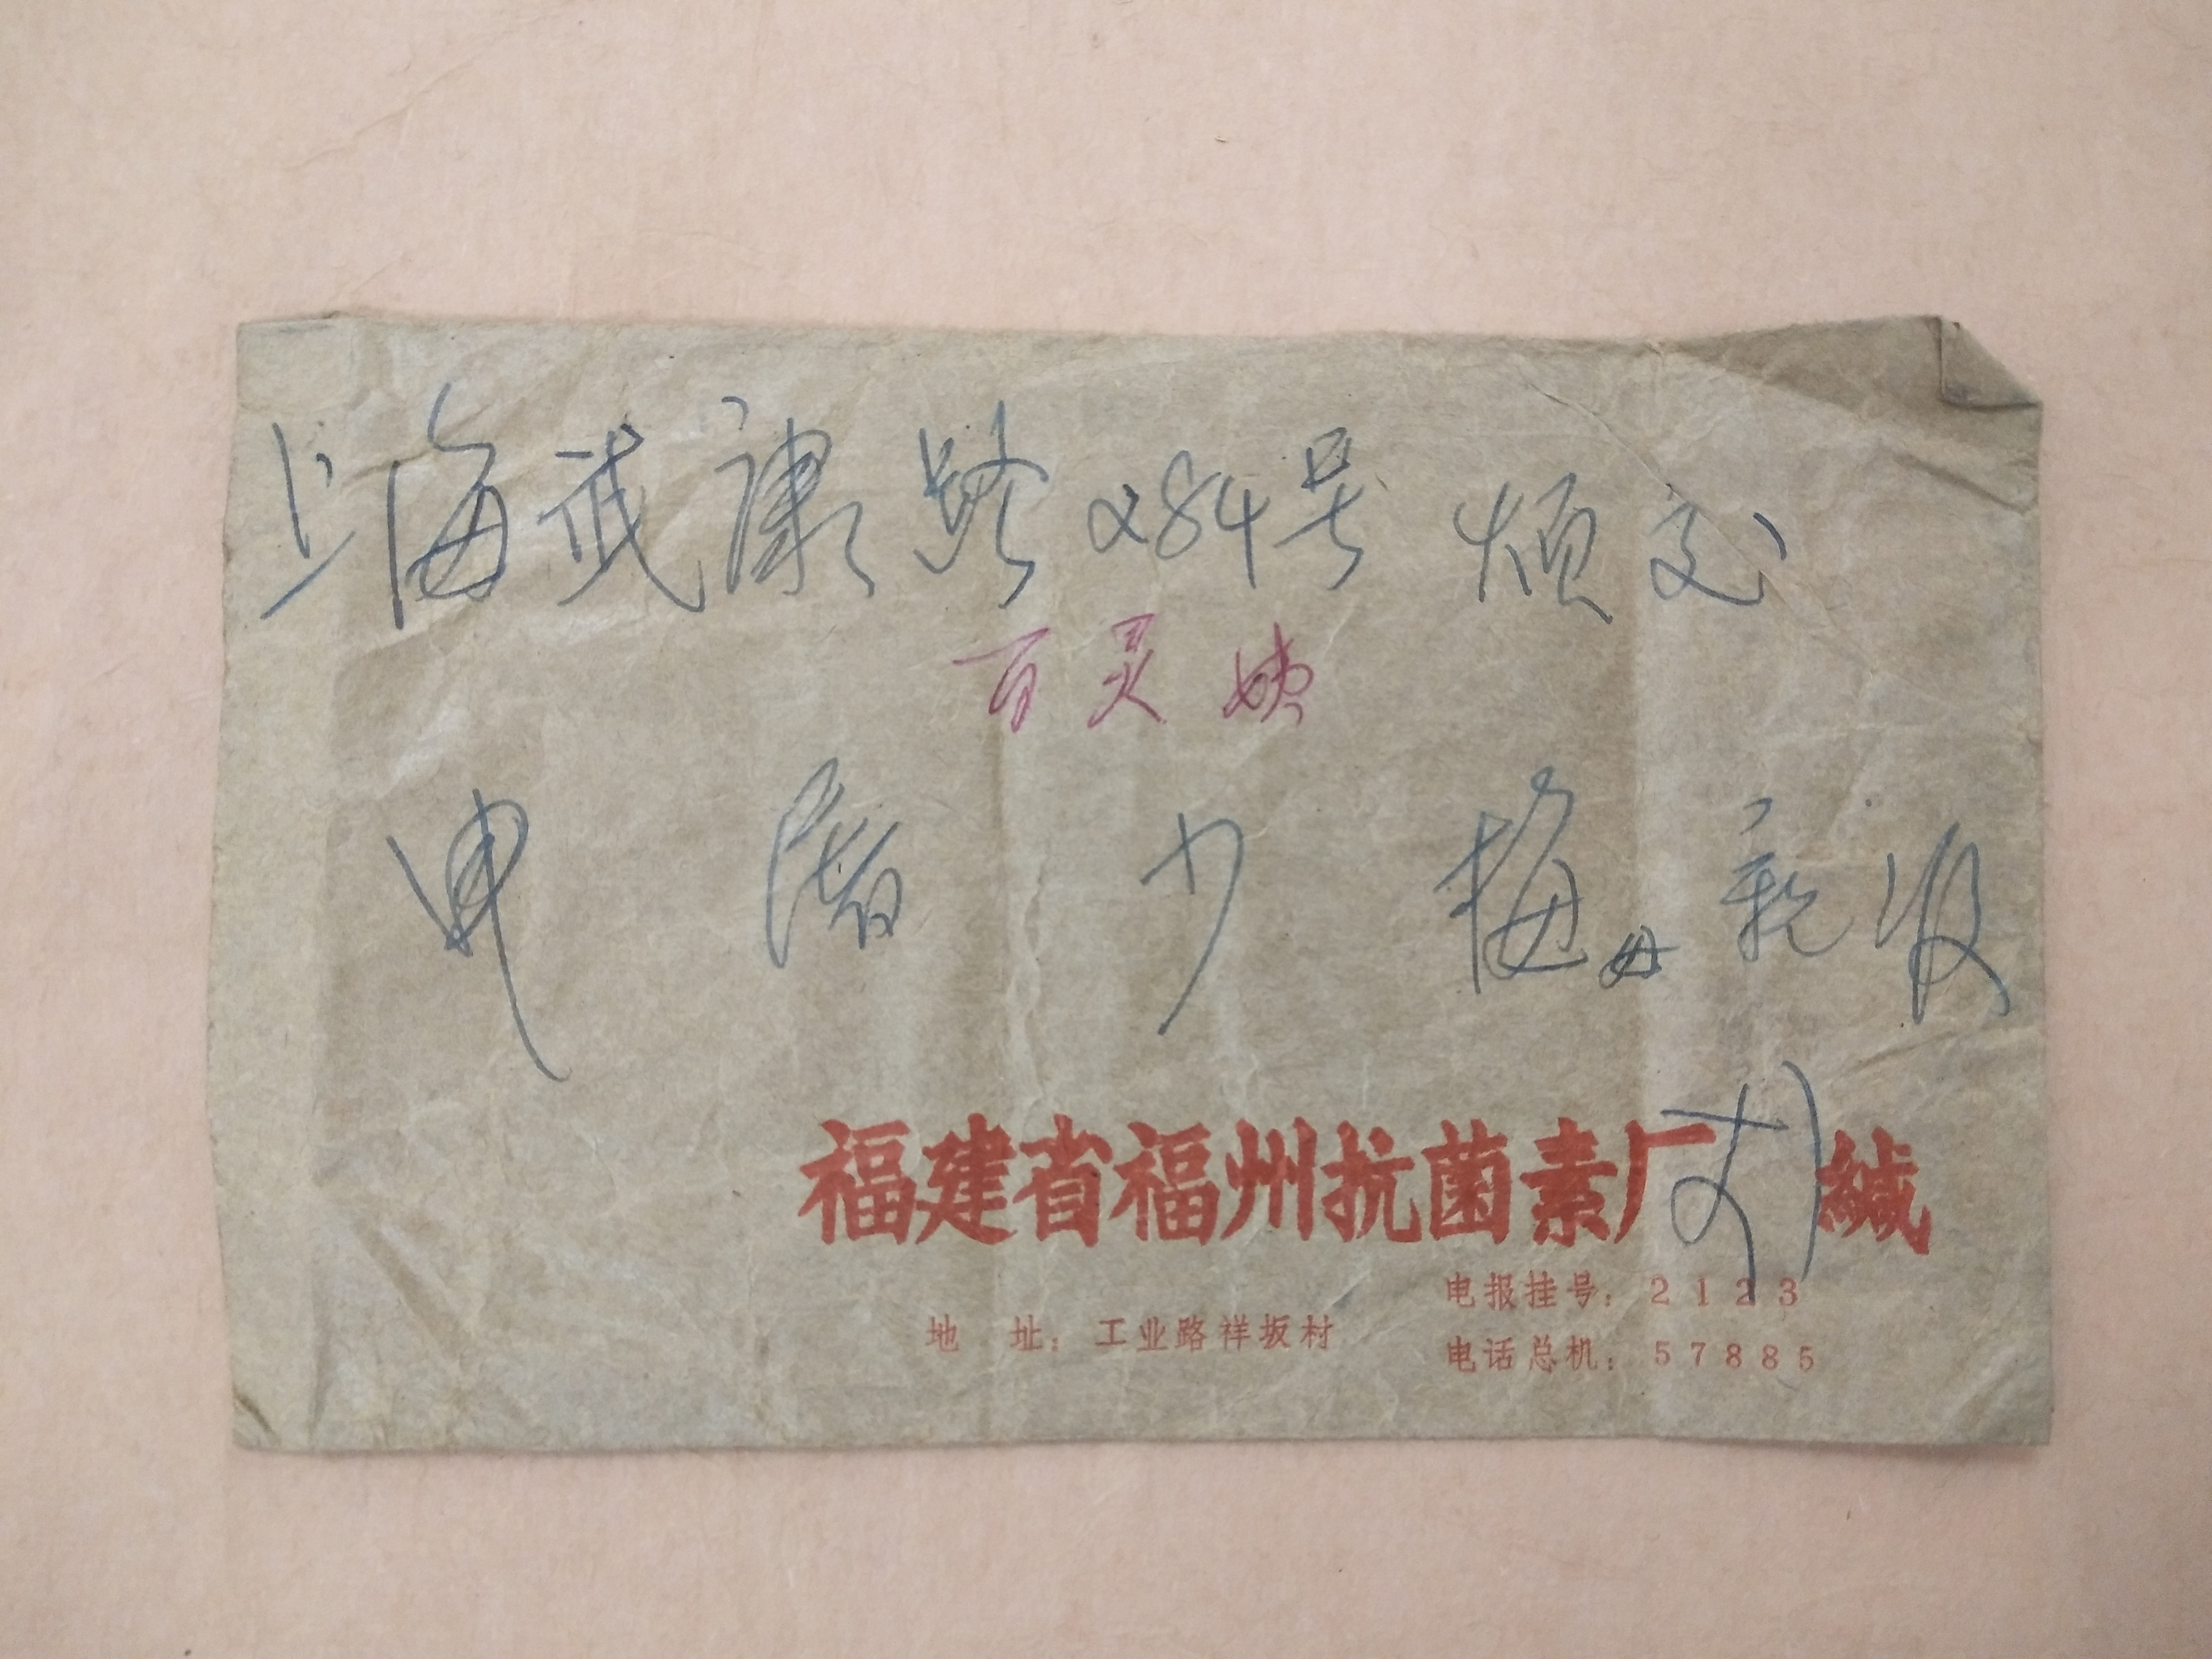 上海武康路284号 烦交
百灵姨
申 屠 少 梅 母 亲收
福建省福州抗菌素厂刘缄
电报挂号：2123
地　址：工业路祥坂村
电话总机：57885